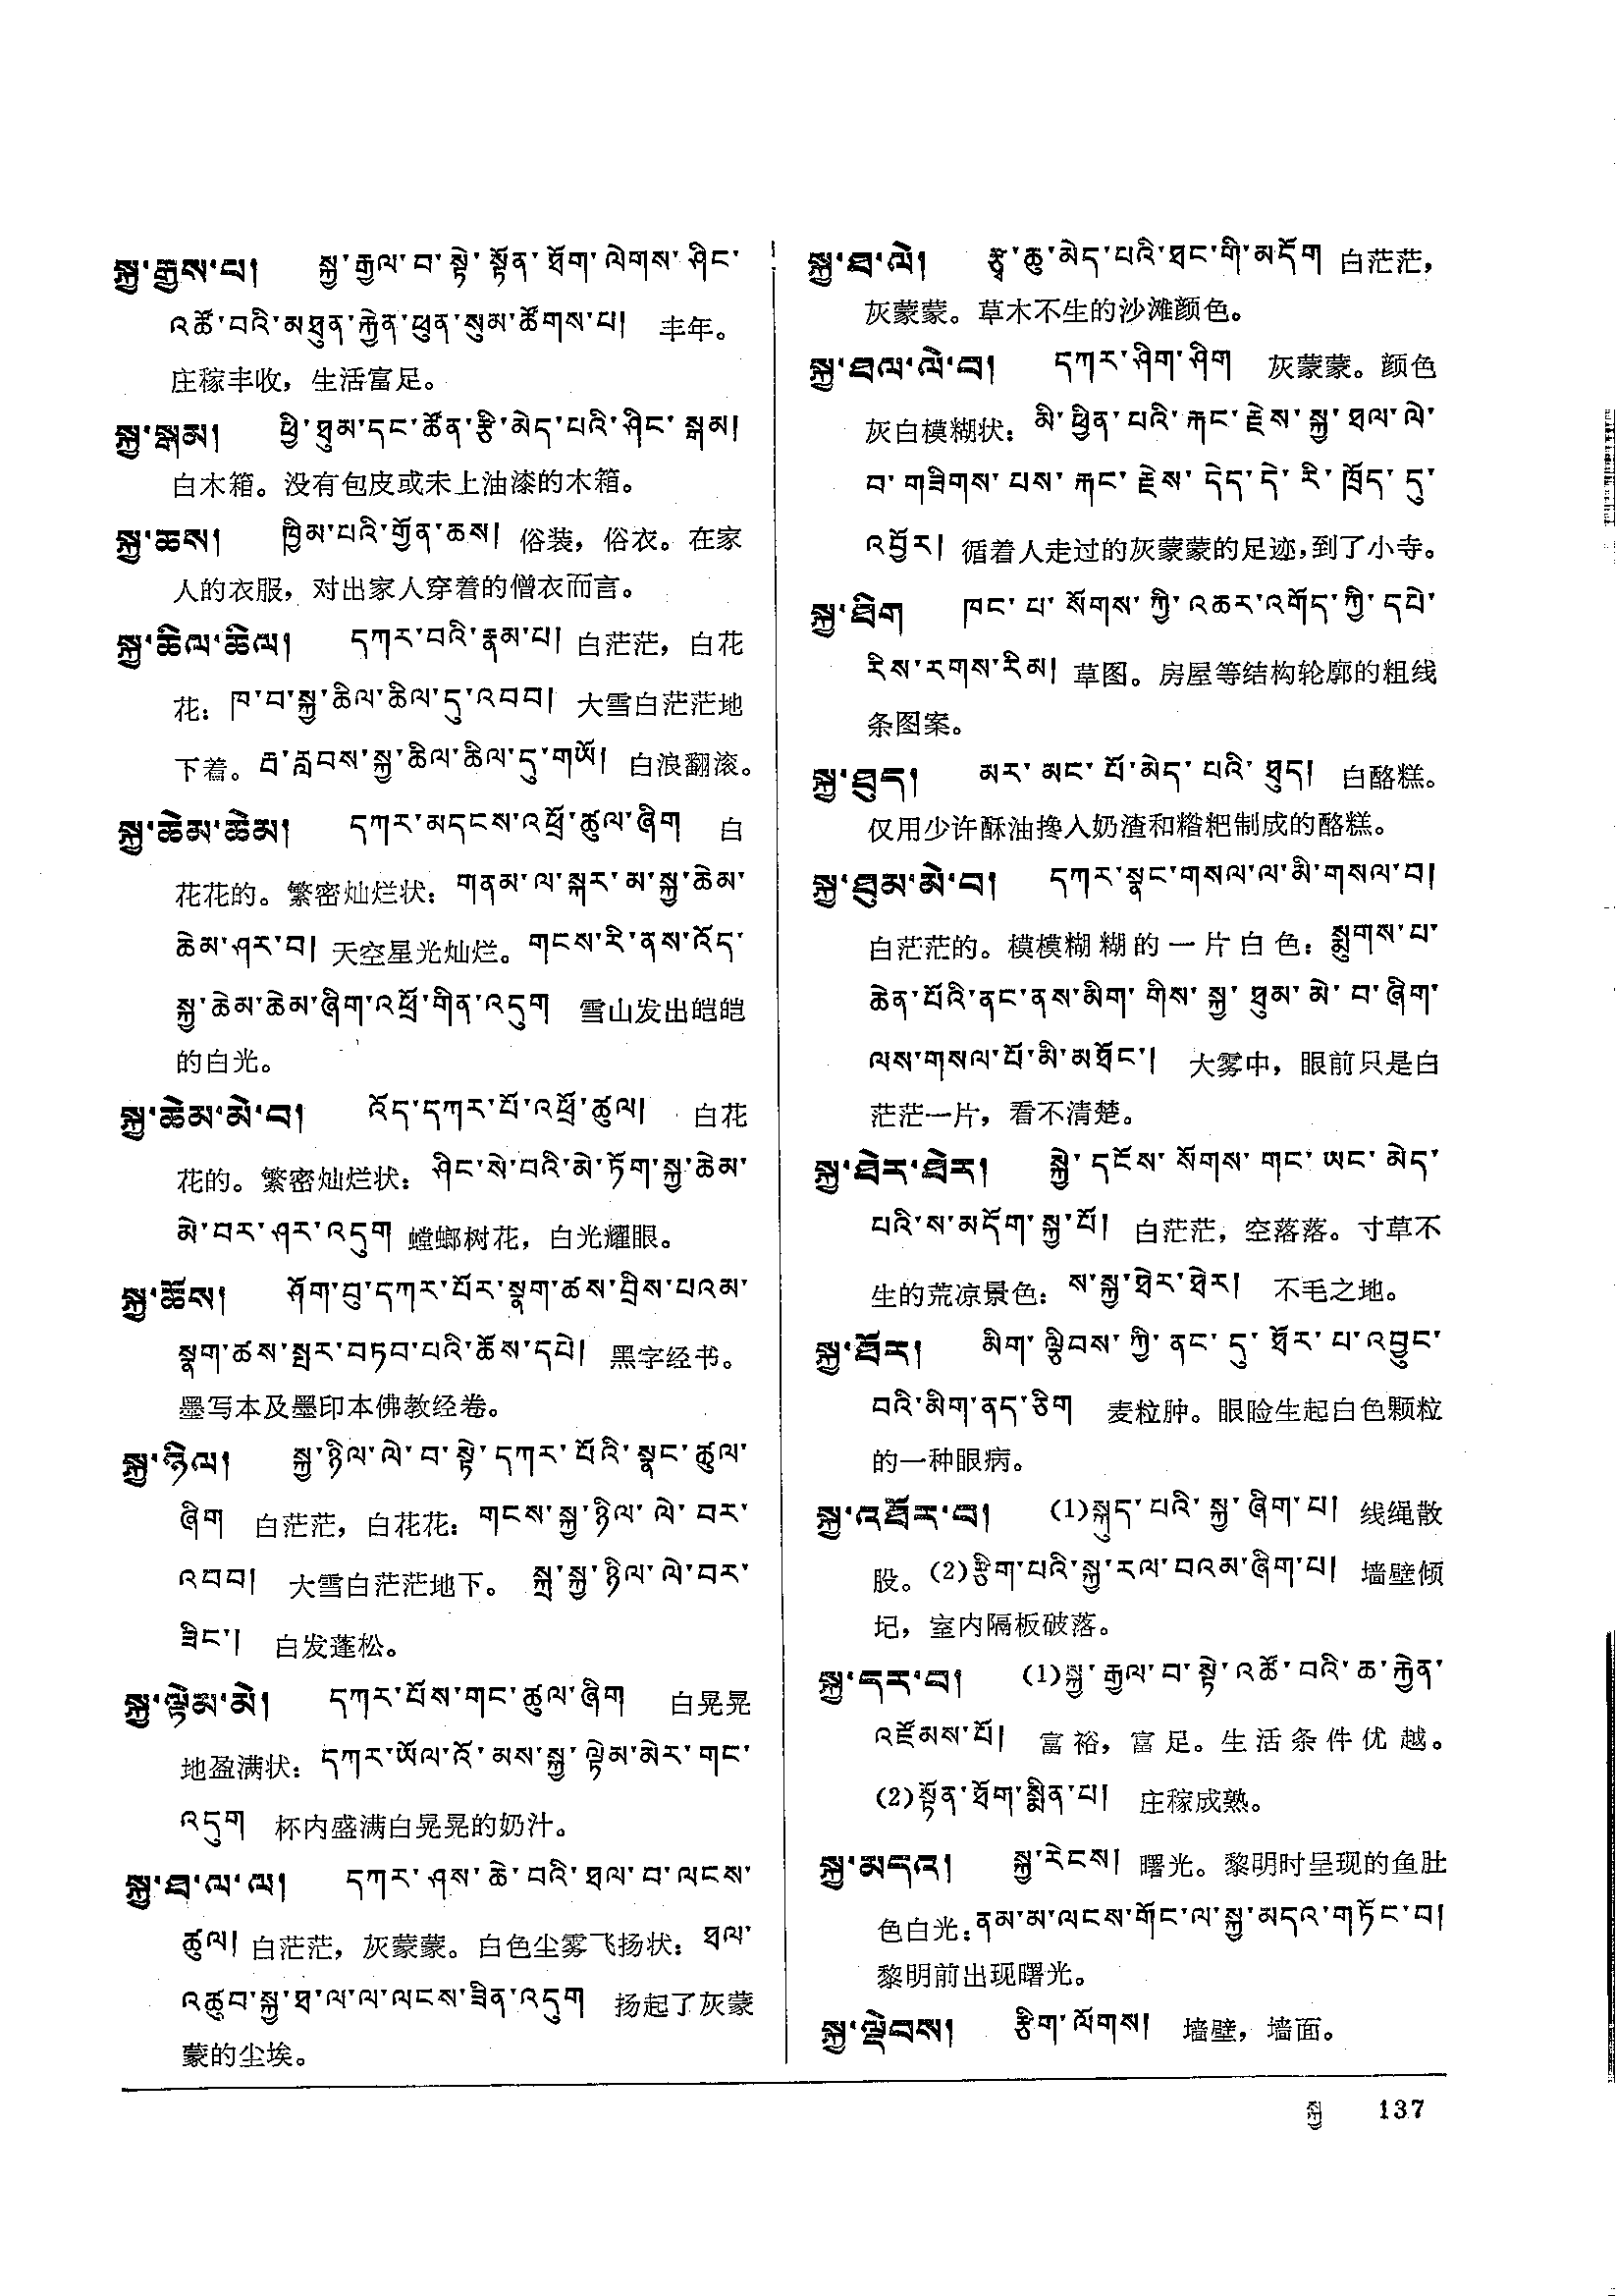 སྐྱ་རྒྱས་པ། སྐྱ་རྒྱལ་བ་སྟེ་སྟོན་ཐོག་ལེགས་ཤིང་
འཚོ་བའི་མཐུན་རྐྱེན་ཕུན་སུམ་ཚོགས་པ། 丰年。
庄稼丰收，生活富足。
སྐྱ་སྒམ། ཕྱི་ཐུམ་དང་ཚོན་རྩི་མེད་པའི་ཤིང་སྒམ།
白木箱。没有包皮或未上油漆的木箱。
སྐྱ་ཆས། ཁྱིམ་པའི་གྱོན་ཆས། 俗装，俗衣。在家
人的衣服，对出家人穿着的僧衣而言。
སྐྱ་ཆིལ་ཆིལ། དཀར་བའི་རྣམ་པ། 白茫茫，白花
花：ཁ་བ་སྐྱ་ཆིལ་ཆིལ་དུ་འབབ། 大雪白茫茫地
下着。རྦ་རླབས་སྐྱ་ཆིལ་ཆིལ་དུ་གཡོ། 白浪翻滚。
སྐྱ་ཆེམ་ཆེམ། དཀར་མདངས་འཕྲོ་ཚུལ་ཞིག 白
花花的。繁密灿烂状：གནམ་ལ་སྐར་མ་སྐྱ་ཆེམ་
ཆེམ་ཤར་བ། 天空星光灿烂。གངས་རི་ནས་འོད་
སྐྱ་ཆེམ་ཆེམ་ཞིག་འཕྲོ་གིན་འདུག 雪山发出皑皑
的白光。
སྐྱ་ཆེམ་མེ་བ། འོད་དཀར་པོ་འཕྲོ་ཚུལ། 白花
花的。繁密灿烂状：ཤིང་སེ་བའི་མེ་ཏོག་སྐྱ་ཆེམ་
མེ་བར་ཤར་འདུག 螳螂树花，白光耀眼。
སྐྱ་ཆོས། ཤོག་བུ་དཀར་པོར་སྣག་ཚས་བྲིས་པའམ་
སྣག་ཚས་སྤར་བཏབ་པའི་ཆོས་དཔེ། 黑字经书。
墨写本及墨印本佛教经卷。
སྐྱ་ཉིལ། སྐྱ་ཉིལ་ལེ་བ་སྟེ་དཀར་པོའི་སྣང་ཚུལ་
ཞིག 白茫茫，白花花：གངས་སྐྱ་ཉིལ་ལེ་བར་
འབབ། 大雪白茫茫地下。སྐྲ་སྐྱ་ཉིལ་ལེ་བར་
ཟིང་། 白发蓬松。
སྐྱ་ལྟེམ་མེ། དཀར་པོས་གང་ཚུལ་ཞིག 白晃晃
地盈满状：དཀར་ཡོལ་འོ་མས་སྐྱ་ལྟེམ་མེར་གང་
འདུག 杯内盛满白晃晃的奶汁。
སྐྱ་ཐ་ལ་ལ། དཀར་ཤས་ཆེ་བའི་ཐལ་བ་ལངས་
ཚུལ། 白茫茫，灰蒙蒙。白色尘雾飞扬状：ཐལ་
འཚུབ་སྐྱ་ཐ་ལ་ལ་ལངས་ཟིན་འདུག 扬起了灰蒙
蒙的尘埃。
སྐྱ་ཐ་ལེ། རྩྭ་ཆུ་མེད་པའི་ཐང་གི་མདོག 白茫茫，
灰蒙蒙。草木不生的沙滩颜色。
སྐྱ་ཐལ་ལེ་བ། དཀར་ཤིག་ཤིག 灰蒙蒙。颜色
灰白模糊状：མི་ཕྱིན་པའི་རྐང་རྗེས་སྐྱ་ཐལ་ལེ་
བ་གཟིགས་པས་རྐང་རྗེས་དེད་དེ་རི་ཁྲོད་དུ་
འབྱོར། 循着人走过的灰蒙蒙的足迹，到了小寺。
སྐྱ་ཐིག ཁང་པ་སོགས་ཀྱི་འཆར་འགོད་ཀྱི་དཔེ་
རིས་རགས་རིམ། 草图。房屋等结构轮廓的粗线
条图案。
སྐྱ་ཐུད། མར་མང་པོ་མེད་པའི་ཐུད། 白酪糕。
仅用少许酥油搀入奶渣和糌粑制成的酪糕。
སྐྱ་ཐུམ་མེ་བ། དཀར་སྣང་གསལ་ལ་མི་གསལ་བ།
白茫茫的。模模糊糊的一片白色：སྨུགས་པ་
ཆེན་པོའི་ནང་ནས་མིག་གིས་སྐྱ་ཐུམ་མེ་བ་ཞིག་
ལས་གསལ་པོ་མི་མཐོང་། 大雾中，眼前只是白
茫茫一片，看不清楚。
སྐྱ་ཐེར་ཐེར། སྐྱེ་དངོས་སོགས་གང་ཡང་མེད་
པའི་ས་མདོག་སྐྱ་པོ། 白茫茫，空落落。寸草不
生的荒凉景色：ས་སྐྱ་ཐེར་ཐེར། 不毛之地。
སྐྱ་ཐོར། མིག་ལྕིབས་ཀྱི་ནང་དུ་ཐོར་པ་འབྱུང་
བའི་མིག་ནད་ཅིག 麦粒肿。眼睑生起白色颗粒
的一种眼病。
སྐྱ་འཐོར་བ། (1)སྐུད་པའི་སྐྱ་ཞིག་པ། 线绳散
股。(2)རྩིག་པའི་སྐྱ་རལ་བའམ་ཞིག་པ། 墙壁倾
圮，室内隔板破落。
སྐྱ་དར་བ། (1)སྐྱ་རྒྱལ་བ་སྟེ་འཚོ་བའི་ཆ་རྐྱེན་
འཛོམས་པོ། 富裕，富足。生活条件优越。
(2)སྟོན་ཐོག་སྨིན་པ། 庄稼成熟。
སྐྱ་མདའ། སྐྱ་རེངས། 曙光。黎明时呈现的鱼肚
色白光：ནམ་མ་ལངས་གོང་ལ་སྐྱ་མདའ་གཏོང་བ།
黎明前出现曙光。
སྐྱ་ལྡེབས། རྩིག་ལོགས། 墙壁，墙面。
སྐྱ 137